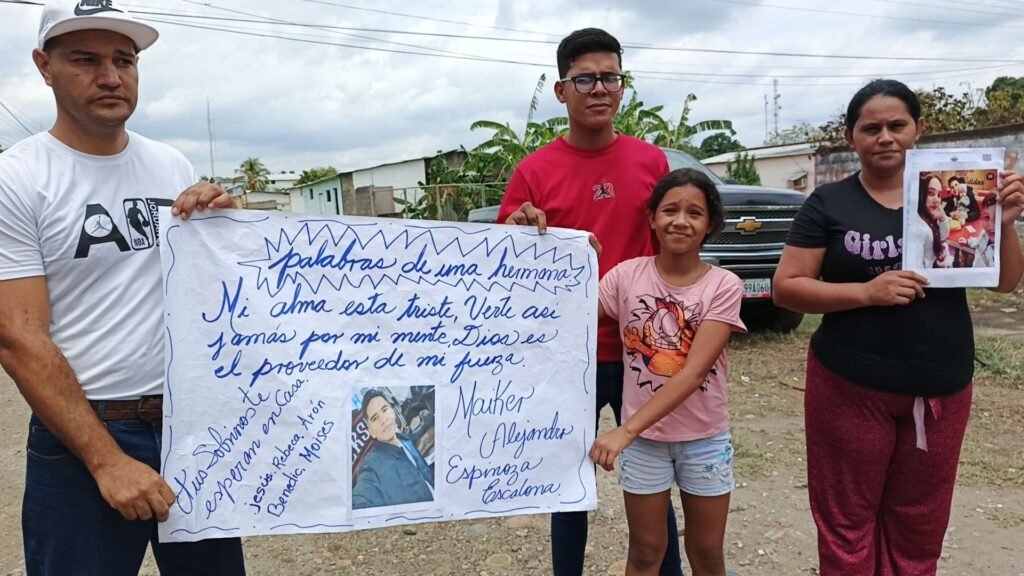 NIKE
palabras de una hermana
Mi alma esta triste, Verte asi
jamás por mi mente, Dios es
el proveedor de mi fueza.
tus Sobrinos te
esperan en Casa.
Jesús, Rebeca, Arón
Benedic, Moises
Maiker
Alejandro
Espinoza
Escalona
23
NBA
Girls